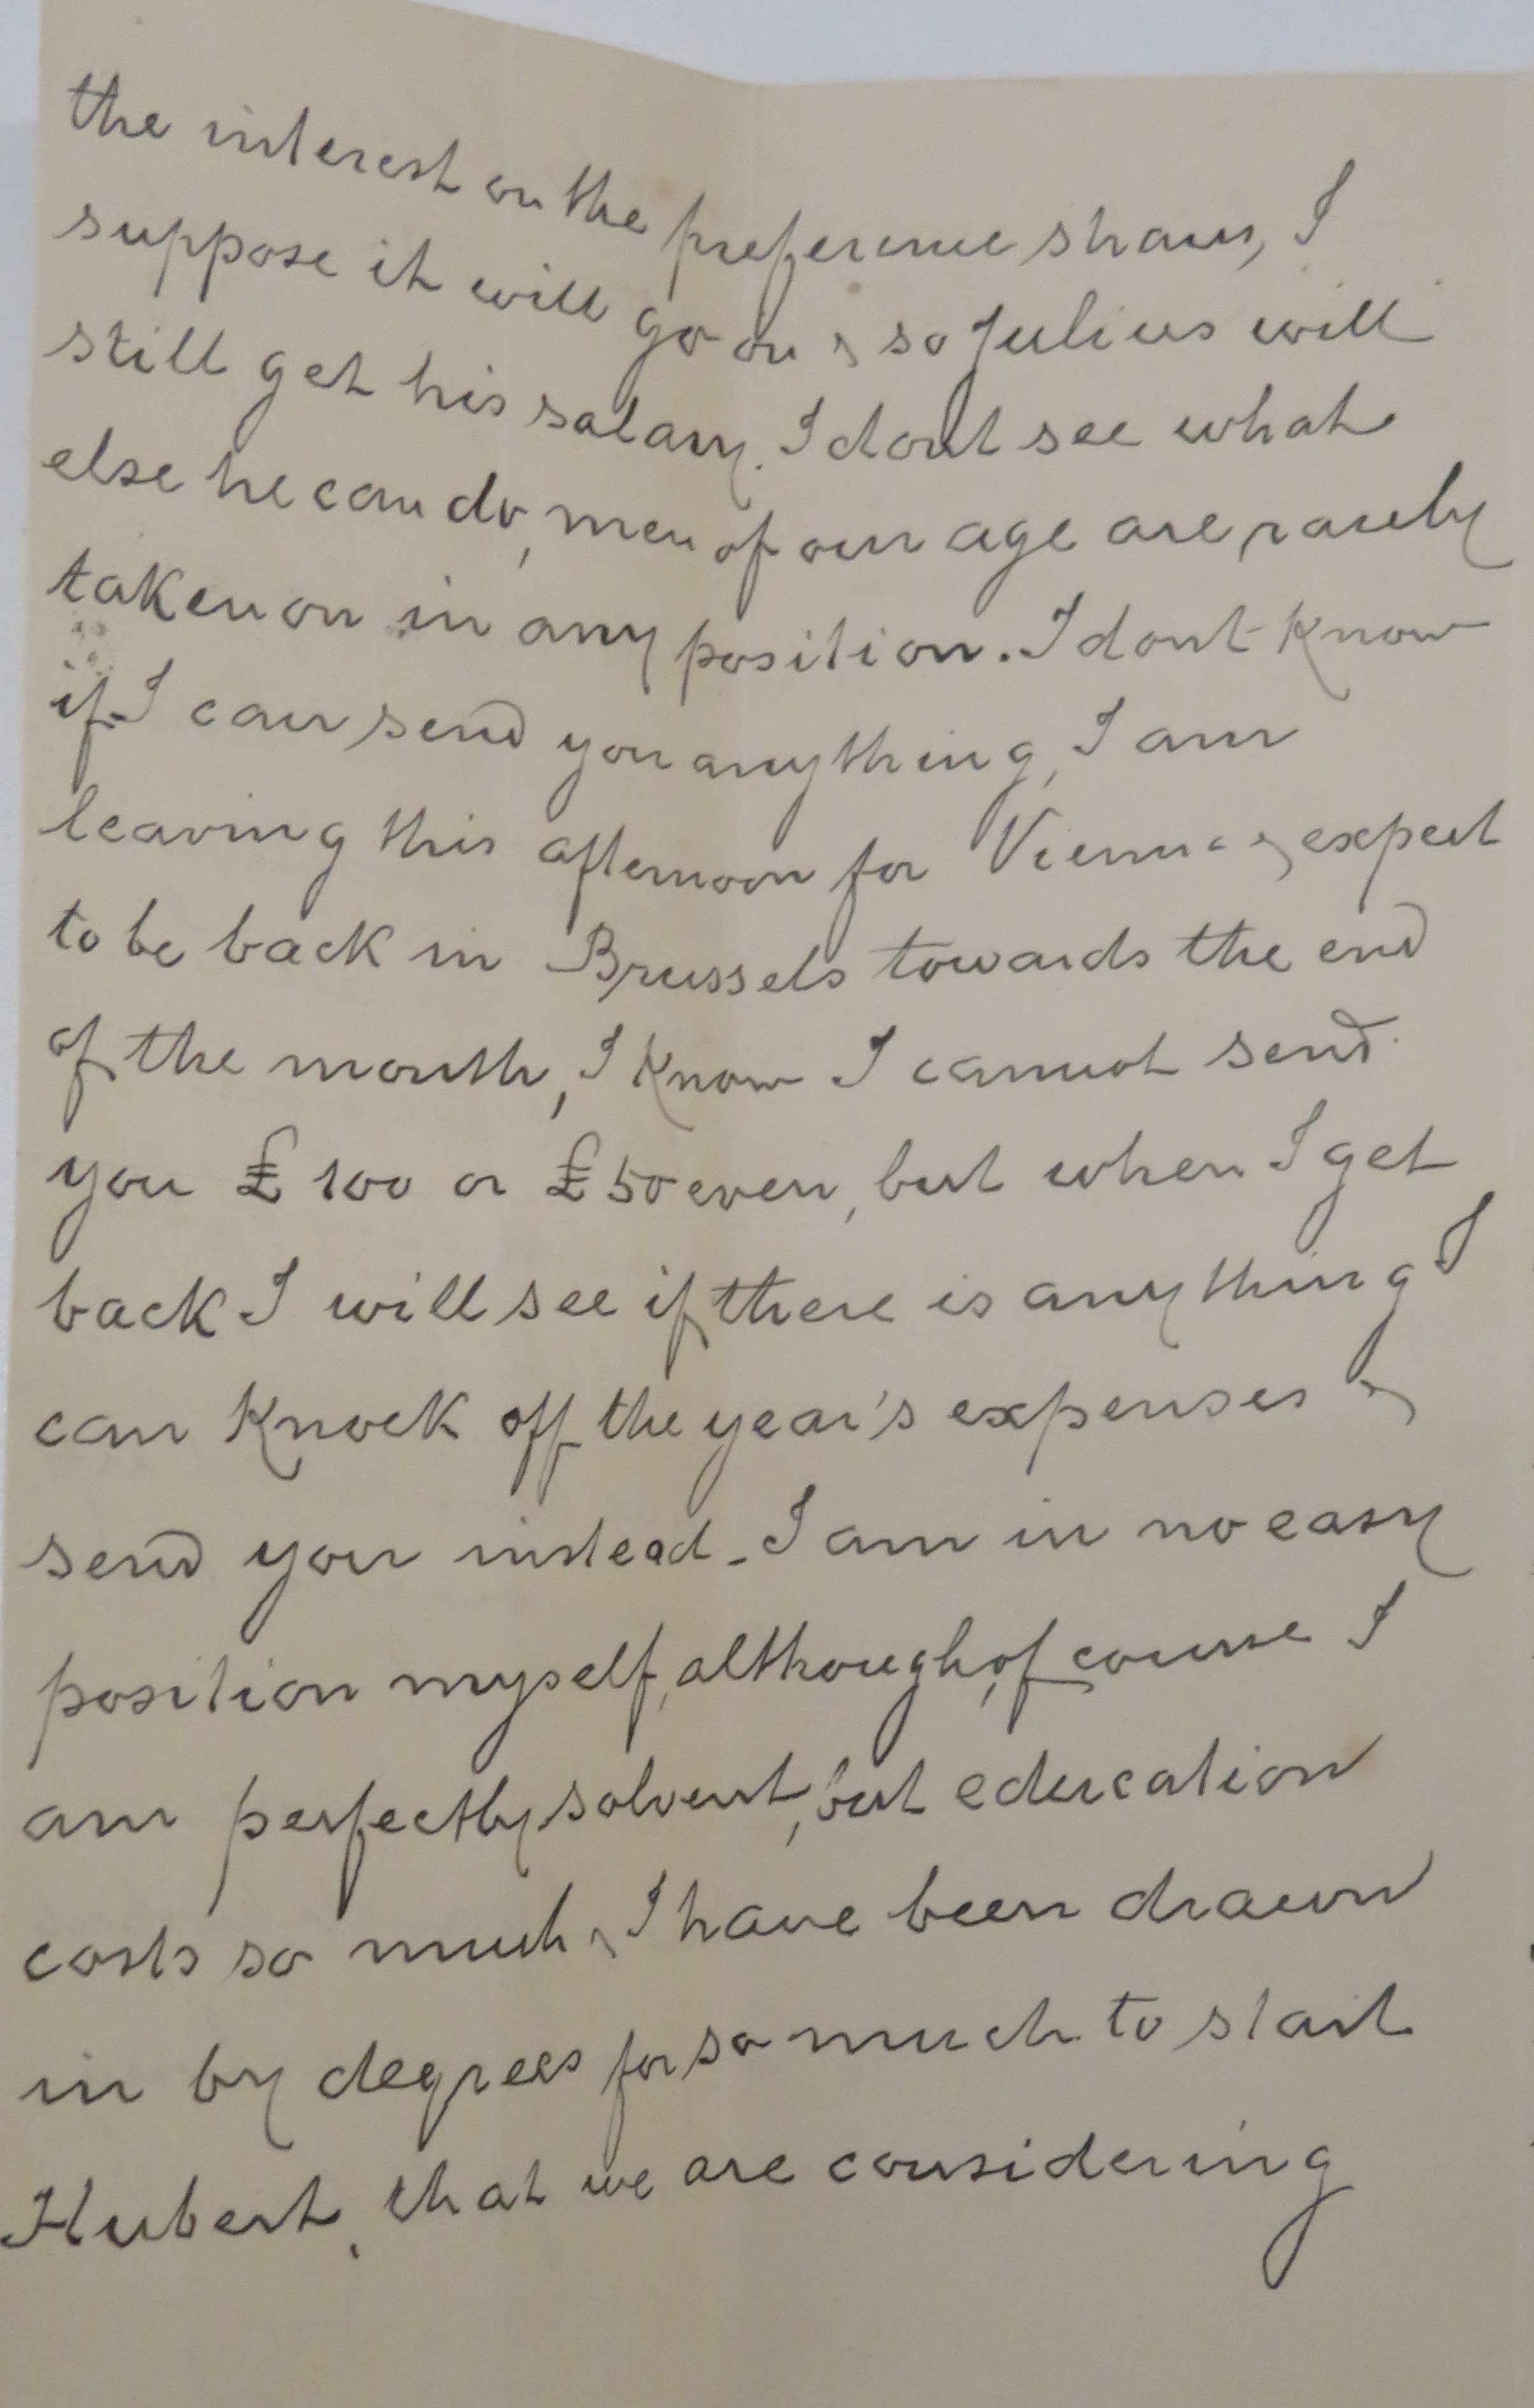 the interest on the preference shares, I
suppose it will go on & so Julius will
still get his salary. I dont see what
else he can do, men of our age are rarely
taken on in any position. I dont know
if I can send you anything, I am
leaving this afternoon for Vienna & expect
to be back in Brussels towards the end
of the month, I know I cannot send
you £100 or £50 even, but when I get
back I will see if there is anything I
can knock off the year's expenses &
send you instead. I am in no easy
position myself, although, of course I
am perfectly solvent, but education
costs so much & I have been drawn
in by degrees for so much to start
Hubert, that we are considering